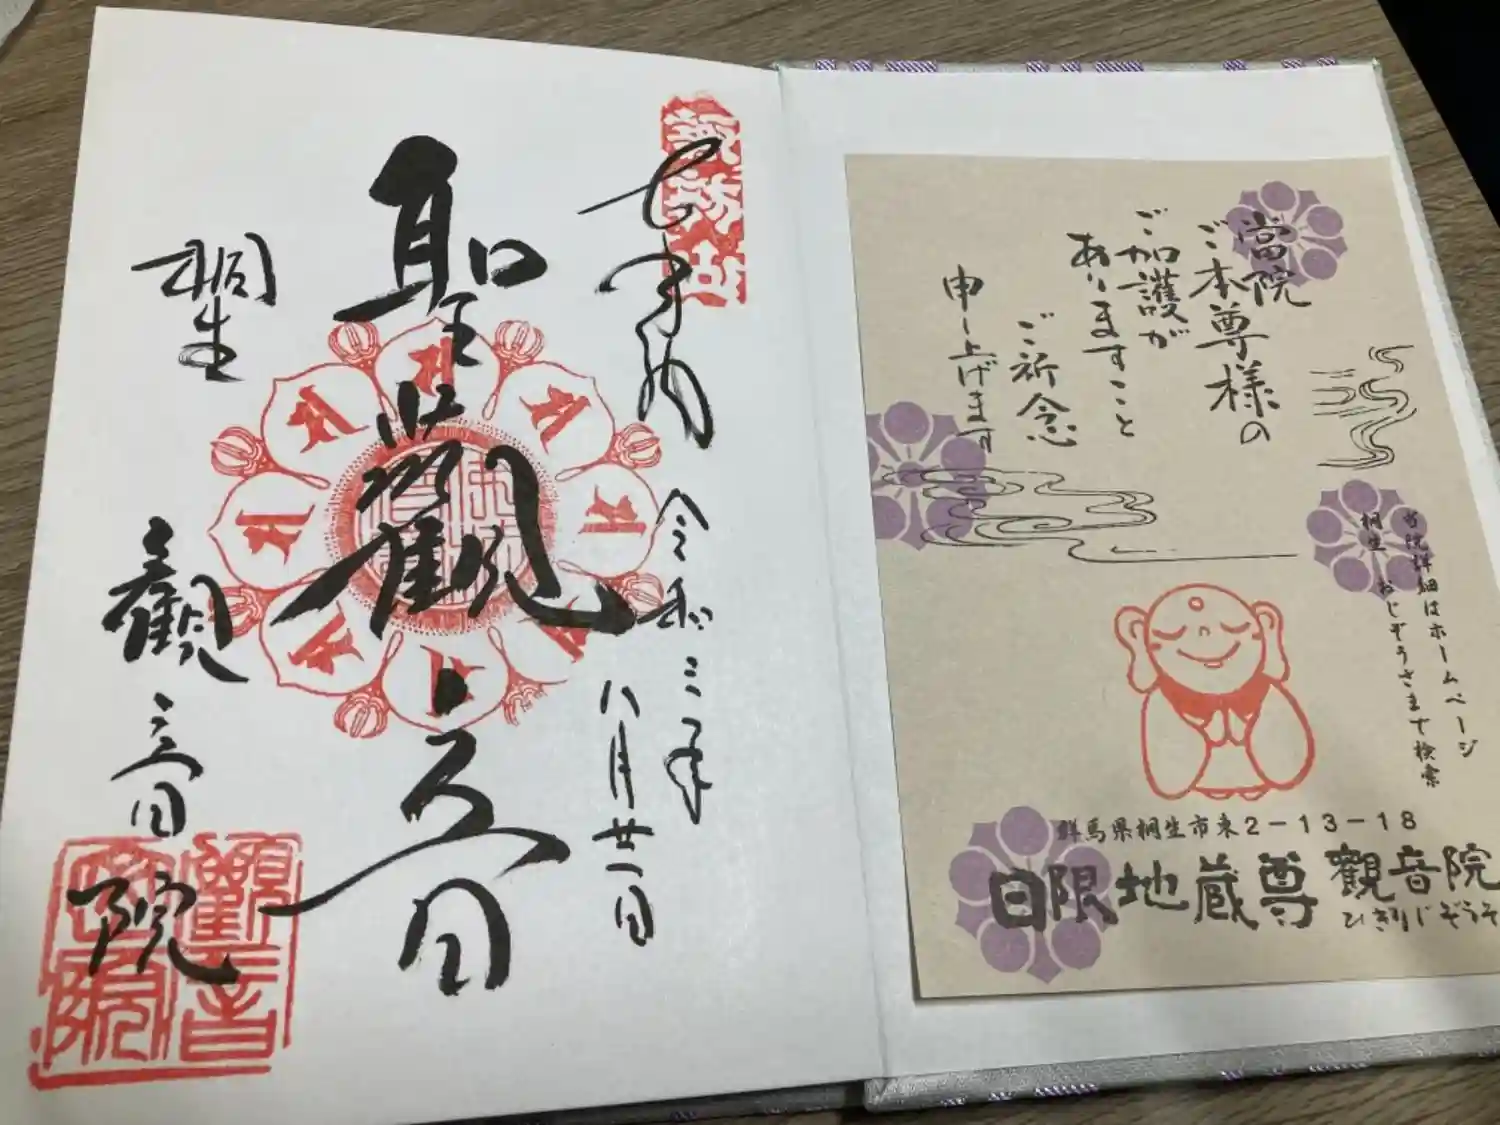 當院
ご本尊様の
ご加護が
ありますこと
ご祈念
申し上げます
当院詳細はホームページ
桐生 おじぞうさまで検索
群馬県桐生市東2-13-18
日限地蔵尊 觀音院
ひぎりじぞうそ
令和三年
八月廿一日
聖觀音
桐生
觀音院